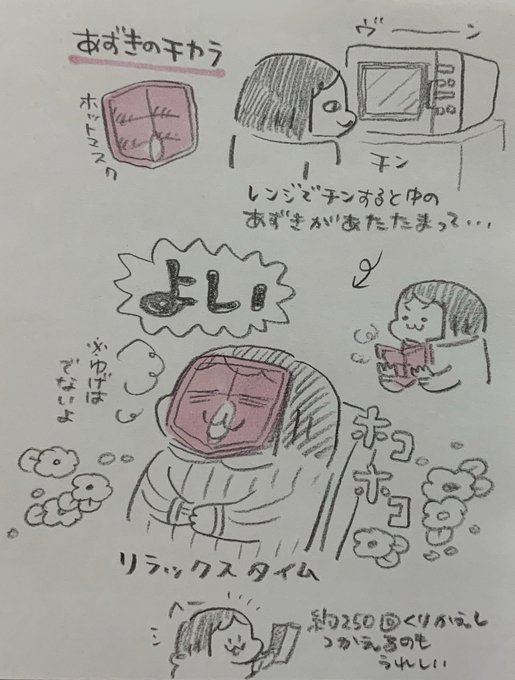 あずきのチカラ
ホットマスク
ヴーーン
チン
レンジでチンすると中の
あずきがあたたまって…
よしい
※ゆげは
でないよ
ホコ
ホコ
リラックスタイム
へー
約250回くりかえし
つかえるのも
うれしい